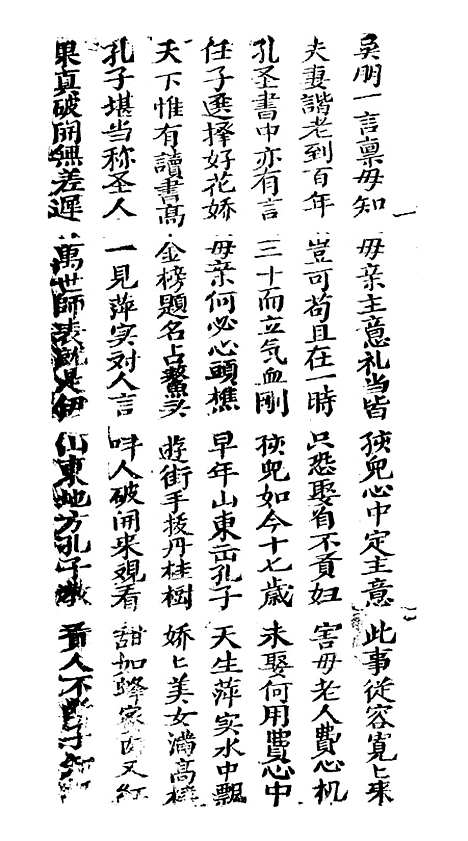 吳明一言禀母知 母亲主意礼当皆 孩兒心中定主意 此事從容寬匕来
夫妻諧老到百年 豈可苟且在一時 只恐娶着不賢妇 害母老人費心机
孔圣書中亦有言 三十而立气血剛 孩兒如今十七歲 未娶何用費心中
任子選擇好花娇 母亲何必心頭樵 早年山東出孔子 天生萍实水中飄
天下惟有讀書高 金榜題名占鰲头 遊街手扳丹桂樹 娇匕美女满高樓
孔子堪当称圣人 一見萍实对人言 呌人破開来观看 甜如蜂蜜 又紅
果真破開無差遲 萬世師表就是伊 山東地方孔子 人不 子